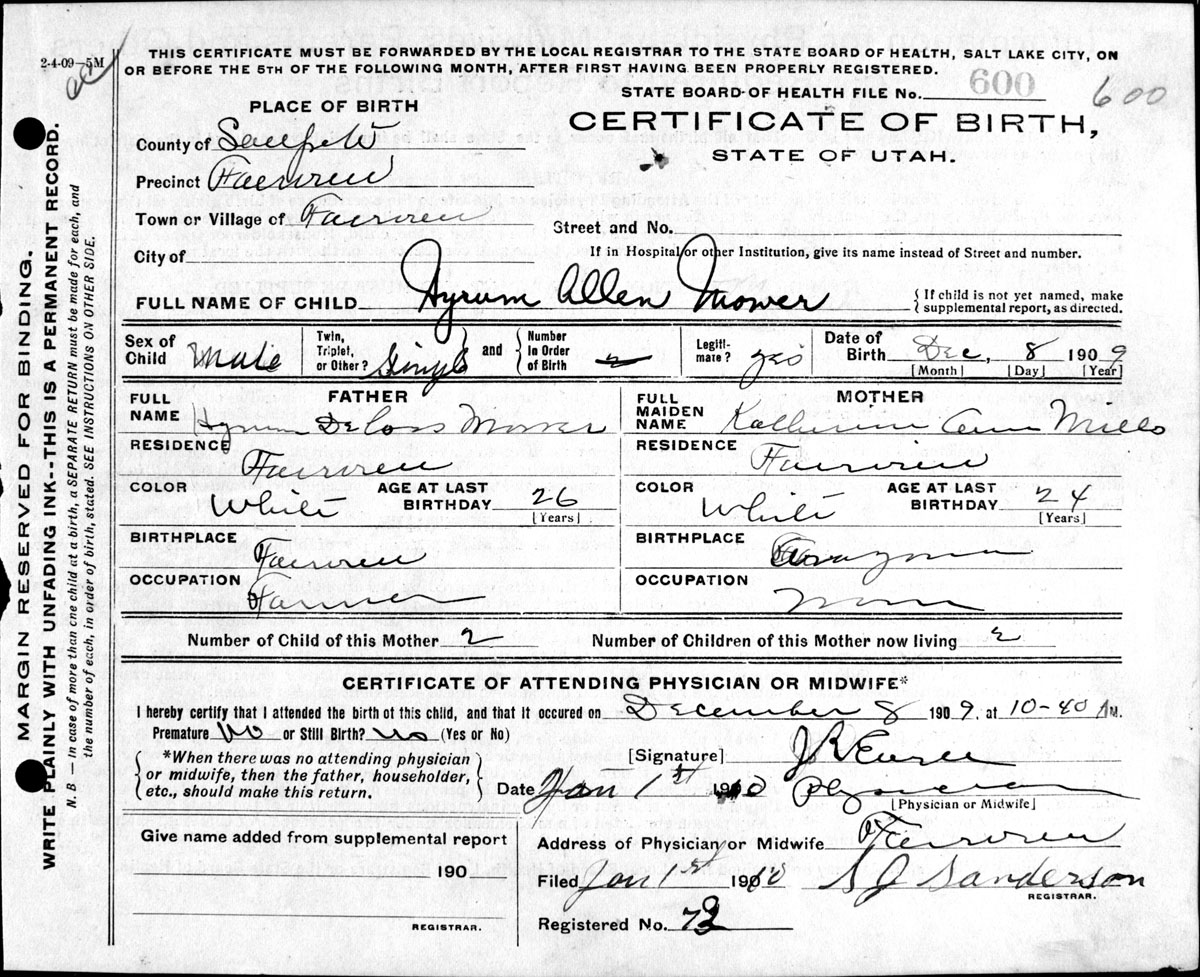 2-4-09—5M
THIS CERTIFICATE MUST BE FORWARDED BY THE LOCAL REGISTRAR TO THE STATE BOARD OF HEALTH, SALT LAKE CITY, ON
OR BEFORE THE 5TH OF THE FOLLOWING MONTH, AFTER FIRST HAVING BEEN PROPERLY REGISTERED.
STATE BOARD OF HEALTH FILE No. 600 600
PLACE OF BIRTH
CERTIFICATE OF BIRTH,
STATE OF UTAH.
County of
Precinct
Town or Village of
Street and No.
City of
If in Hospital or other Institution, give its name instead of Street and number.
FULL NAME OF CHILD Hyrum Allen Mower
{If child is not yet named, make
supplemental report, as directed.
Sex of Child Male
Twin, Triplet, or Other? Single
and
Number In Order of Birth 2
Legiti-mate? yes
Date of Birth Dec, 8 1909
[Month] [Day] [Year]
FATHER
FULL NAME Hyrum DeLoss Mower
RESIDENCE
COLOR White
AGE AT LAST BIRTHDAY 26
[Years]
BIRTHPLACE
OCCUPATION Farmer
MOTHER
FULL MAIDEN NAME Ann
RESIDENCE
COLOR White
AGE AT LAST BIRTHDAY 24
[Years]
BIRTHPLACE
OCCUPATION
Number of Child of this Mother 2
Number of Children of this Mother now living 2
CERTIFICATE OF ATTENDING PHYSICIAN OR MIDWIFE*
I hereby certify that I attended the birth of this child, and that it occured on December 8 1909, at 10-40 A M.
Premature No or Still Birth? No (Yes or No)
*When there was no attending physician
or midwife, then the father, householder,
etc., should make this return.
[Signature]
Date Jan 1st 1910 Physician
[Physician or Midwife]
Give name added from supplemental report
190
REGISTRAR.
Address of Physician or Midwife
Filed Jan 1st 1910 S J Sanderson
REGISTRAR.
Registered No. 73
MARGIN RESERVED FOR BINDING.
WRITE PLAINLY WITH UNFADING INK--THIS IS A PERMANENT RECORD.
N. B. — In case of more than one child at a birth, a SEPARATE RETURN must be made for each, and
the number of each, in order of birth, stated. SEE INSTRUCTIONS ON OTHER SIDE.